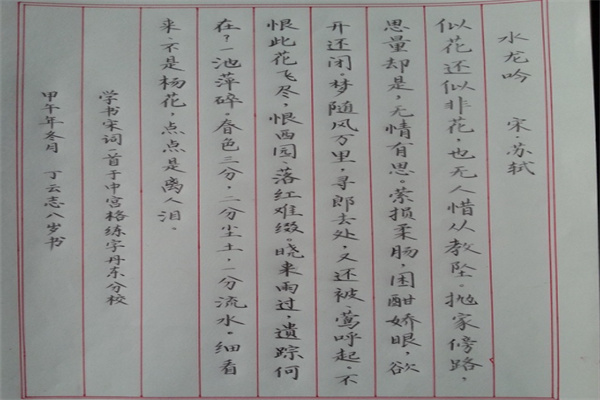 水龙吟 宋·苏轼
似花还似非花,也无人惜从教坠。抛家傍路,
思量却是,无情有思。萦损柔肠,困酣娇眼,欲
开还闭。梦随风万里,寻郎去处,又还被、莺呼起。不
恨此花飞尽,恨西园、落红难缀。晓来雨过,遗踪何
在?一池萍碎。春色三分,二分尘土,一分流水。细看
来、不是杨花,点点是离人泪。
学书宋词一首于中宫格练字丹东分校
甲午年冬月 丁云志八岁书